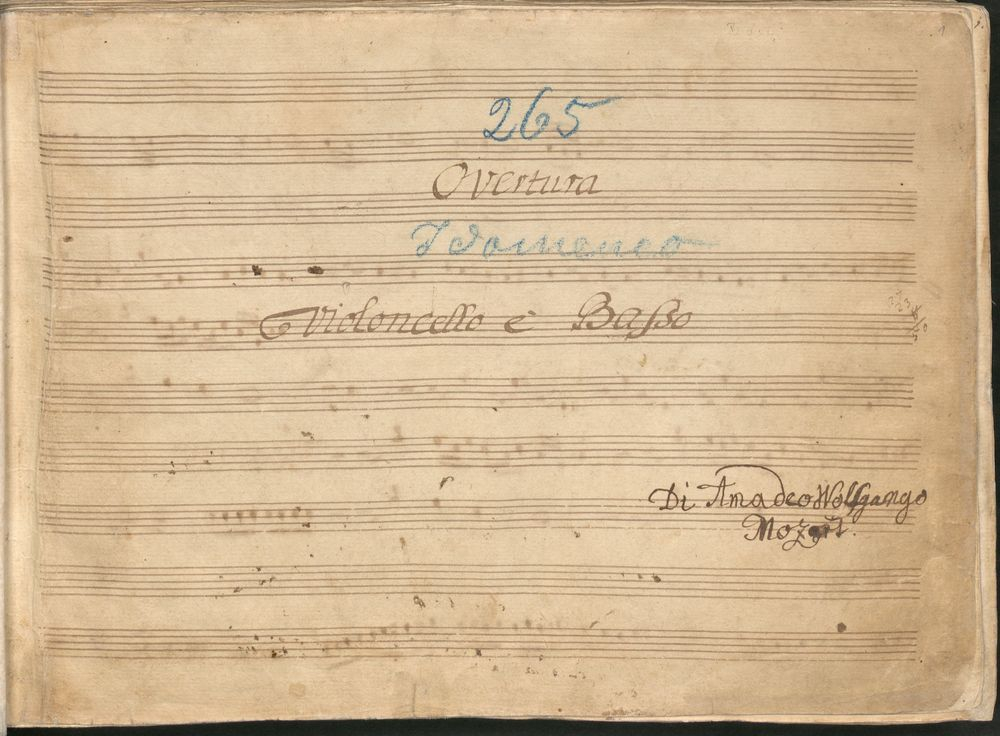 1
265
Overtura
Idomeneo
Violoncello è Basso
Di Amadeo Wolfgango
Mozart.